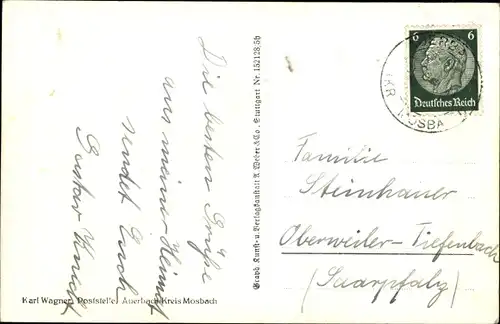 Die besten Grüße
aus meiner Heimat
sendet Euch
Gustav
Karl Wagner, Poststelle, Auerbach Kreis Mosbach
Graph. Kunst- u. Verlagsanstalt A. Weber & Co., Stuttgart Nr. 152128/5b
6 6
Deutsches Reich
MOSBA
Familie
Steinhauer
Oberweiler-Tiefenbach
(Saarpfalz)